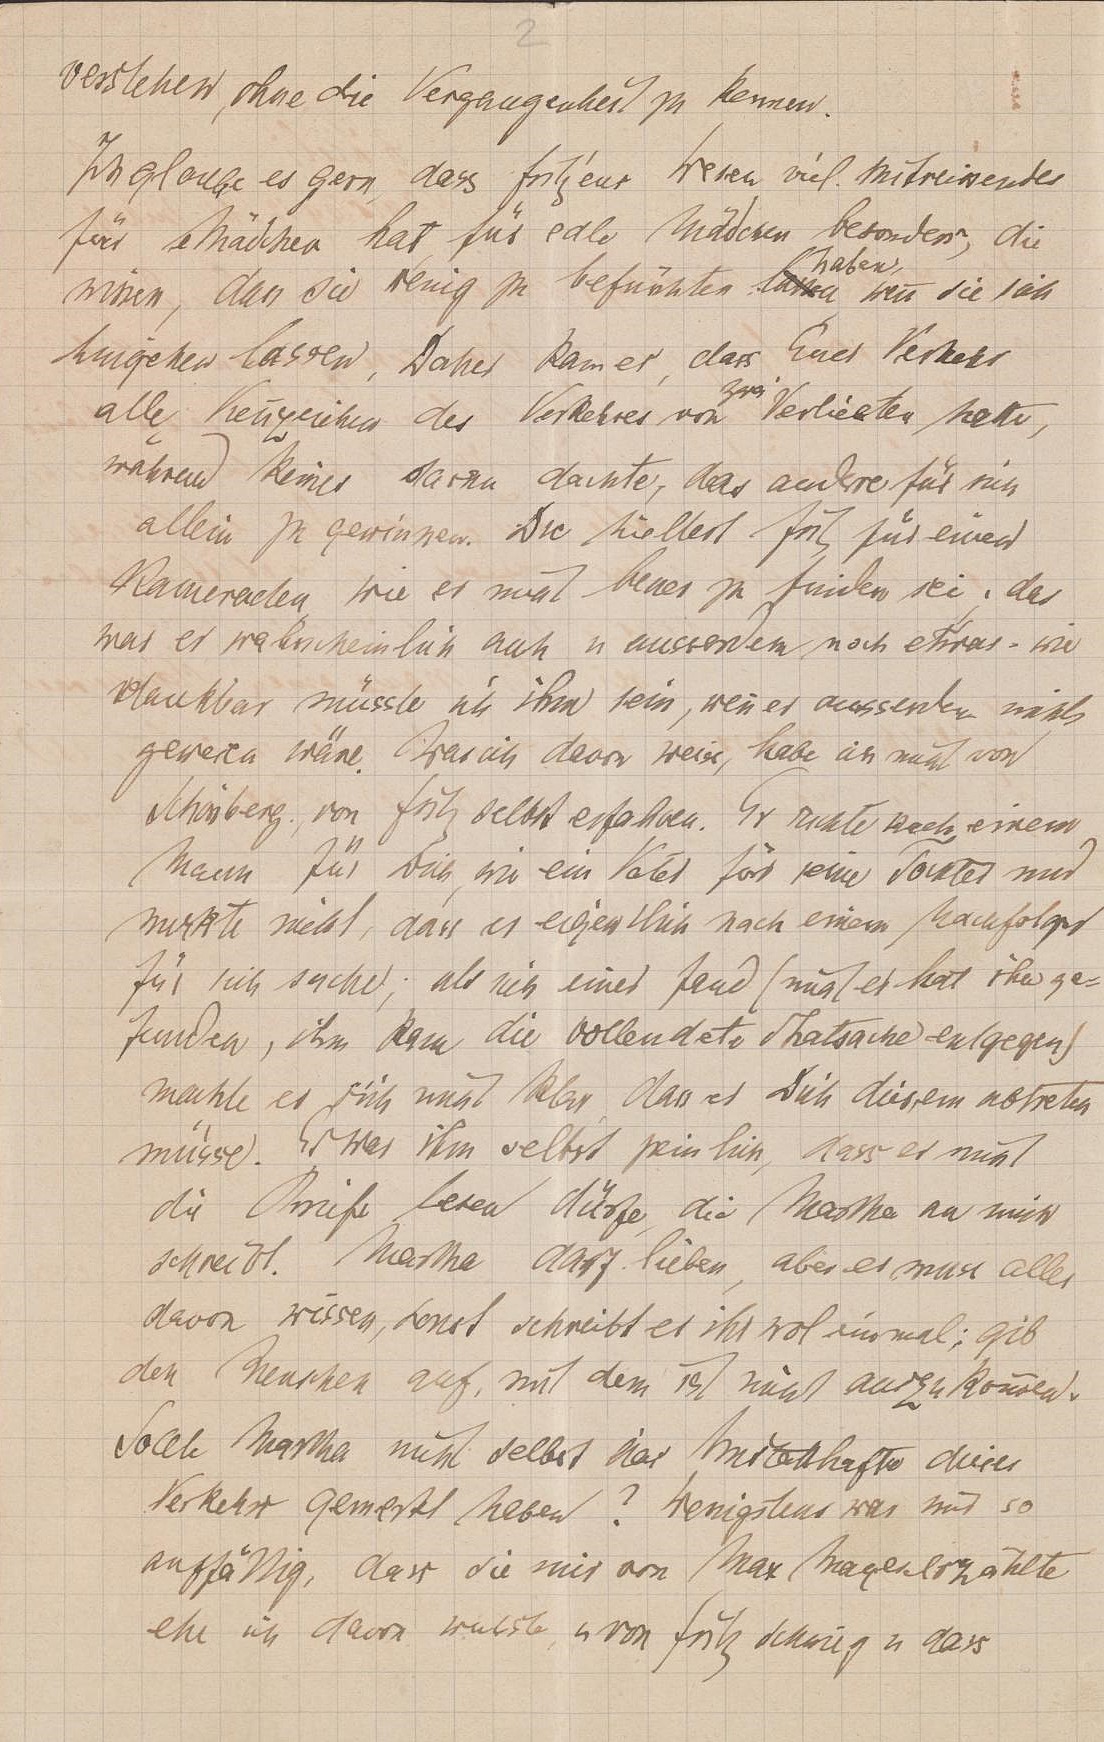 2
verstehen, ohne die Vergangenheit zu kennen.
Ich glaube es gern, dass Fritzens Wesen viel Mitreissendes
für Mädchen hat, für edle Mädchen besonders, die
wissen, dass sie wenig zu befürchten haben, weñ sie sich
hingehen lassen, Daher kam es, dass Euer Verkehr
alle Keñzeichen des Verkehres von zwei Verliebten hatte,
während keines daran dachte, das andere für sich
allein zu gewinnen. Du hieltest Fritz für einen
Kameraden, wie er nicht besser zu finden sei; das
war er wahrscheinlich auch u ausserdem noch etwas - wie
dankbar müsste ich ihm sein, weñ er ausserdem nichts
gewesen wäre. Was ich davon weiss, habe ich nicht von
Schönberg, von Fritz selbst erfahren. Er suchte nach einem
Mann für Dich, wie ein Vater für seine Tochter und
merkte nicht, dass er eigentlich nach einem Nachfolger
für sich suche; als sich einer fand (nicht er hat ihn ge=
funden, ihm kam die vollendete Thatsache entgegen)
machte er sich nicht klar, dass er Dich diesem abtreten
müsse. Es war ihm selbst peinlich, dass er nicht
die Briefe lesen dürfe, die Martha an mich
schreibt. Martha darf lieben, aber er muss alles
davon wissen, sonst schreibt er ihr wol einmal; gib
den Menschen auf, mit dem ist nicht auszukom̃en.
Sollte Martha nicht selbst das dieses
Verkehrs gemerkt haben? Wenigstens war mir so
auffällig, dass sie mir von Max Mayer erzählte
ehe ich davon wusste, u von Fritz schwieg u dass